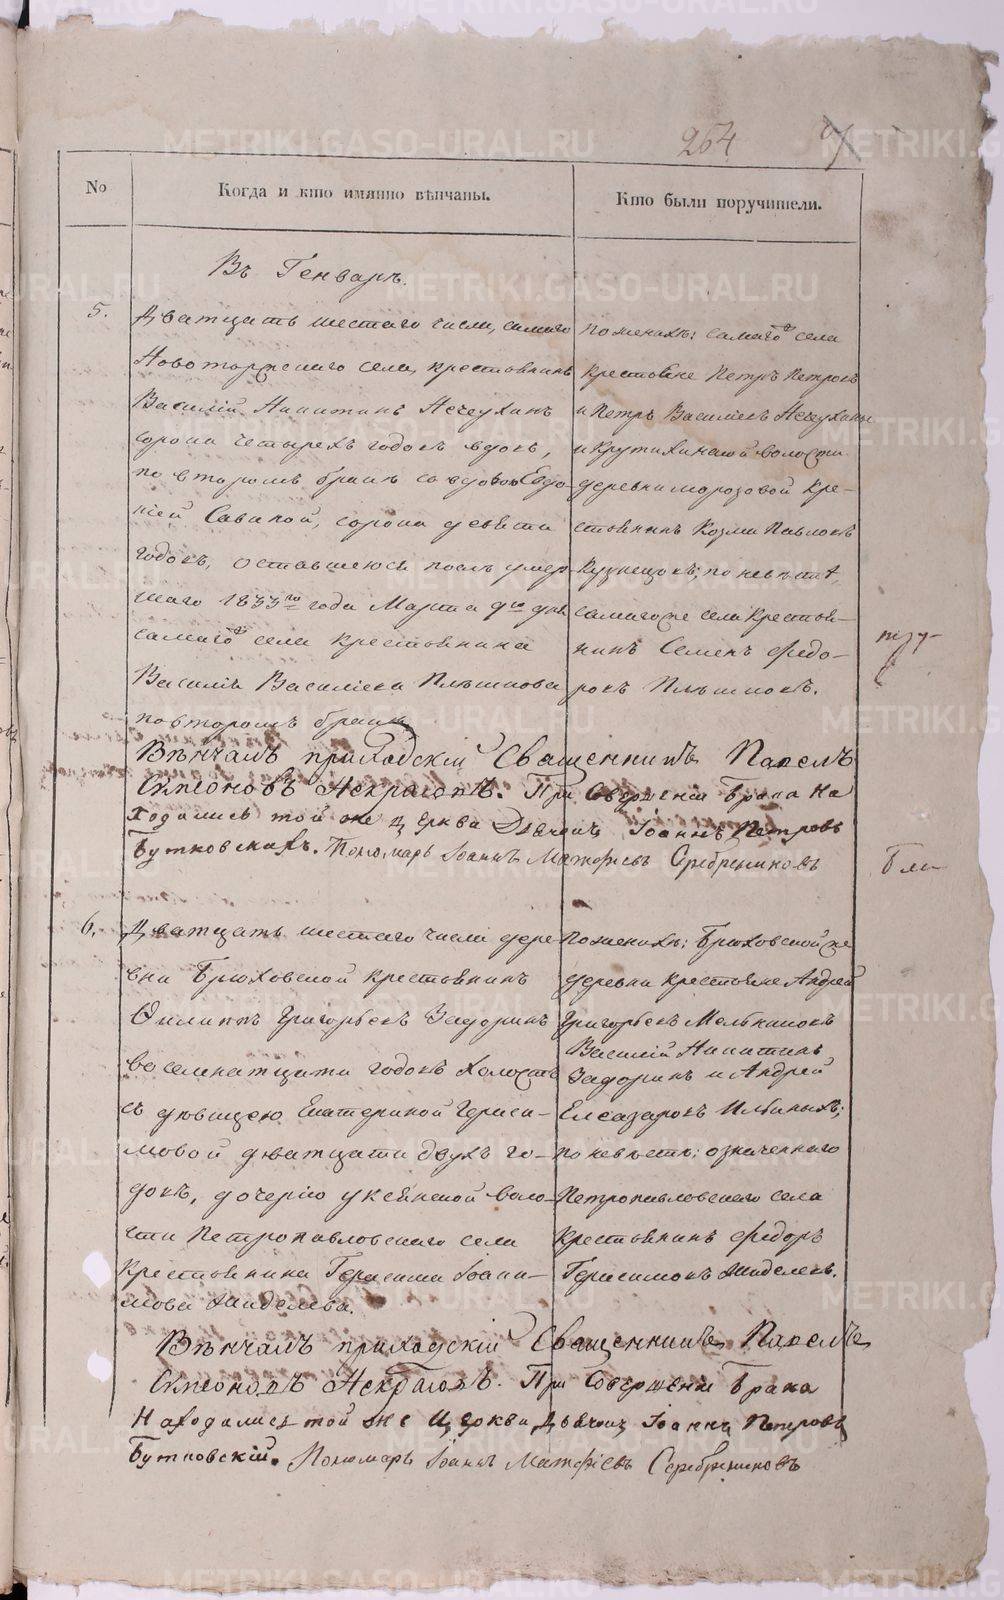 264
№
Когда и кто имянно вѣнчаны.
Кто были поручители.
Въ Генварѣ.
5.
Дватцать шестаго числа, самаго
Новоторжскаго села, крестьянинъ
Василій Никитинъ
сорока четырехъ годовъ вдовъ,
по второмъ бракѣ со вдовою Евдо-
кіей Савиной, сорока девяти
годовъ, оставшеюся послѣ умер-
шаго 1833го года Марта 9го дня
самаго села крестьянина
Василія Васильева Плѣшкова
по второмъ бракѣ
по женихѣ: самаго села
крестьяне Петръ Петровъ
и Петръ Васильевъ
и Крутихинской волости
деревни Морозовой кре-
стьянинъ Козма Павловъ
Кузнецовъ; по невѣстѣ
самаго же села крестья-
нинъ Семенъ Федо-
ровъ Плѣшковъ.
Вѣнчалъ приходскій Священникъ Павелъ
Симеоновъ Некрасовъ. При Совершеніи Брака На
ходились той же Церкви Дьячекъ Іоаннъ Петровъ
Бутковскій. Пономарь Іоаннъ Матфіевъ Серебрениковъ
6.
Дватцать шестаго числа дере-
вни Брюховской крестьянинъ
Филиппъ Григорьевъ Задоринъ
восемнатцати годовъ холостъ
съ дѣвицею Екатериной Гераси-
мовой дватцати двухъ го-
довъ, дочерію уксянской воло-
сти Петропавловскаго села
крестьянина Герасима
по женихѣ: Брюховской же
деревни крестьяне Андрей
Григорьевъ Мельниковъ
Василій Никитинъ
Задоринъ и Андрей
Елеазаровъ Ильиныхъ;
по невѣстѣ: означеннаго
Петропавловскаго села
крестьянинъ Федоръ
Герасимовъ
Вѣнчалъ приходскій Священникъ Павелъ
Симеоновъ Некрасовъ. При Совершеніи Брака
Находились той же Церкви Дьячекъ Іоаннъ Петровъ
Бутковскій. Пономарь Іоаннъ Матфіевъ Серебрениковъ
METRIKI.GASO-URAL.RU